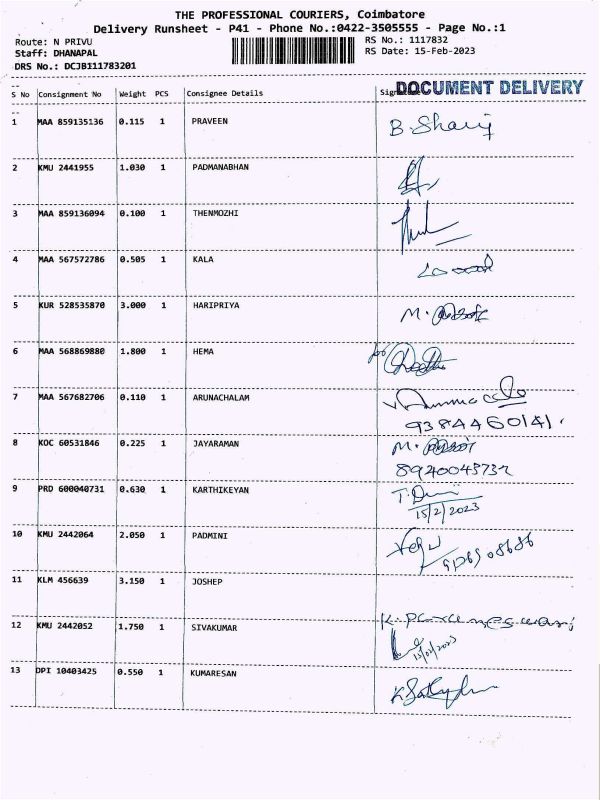 THE PROFESSIONAL COURIERS, Coimbatore
Delivery Runsheet - P41 - Phone No.:0422-3505555 - Page No.:1
Route: N PRIVU RS No.: 1117832
Staff: DHANAPAL RS Date: 15-Feb-2023
DRS No.: DCJB111783201
DOCUMENT DELIVERY
S No Consignment No Weight PCS Consignee Details
1 MAA 859135136 0.115 1 PRAVEEN B. Sharif
2 KMU 2441955 1.030 1 PADMANABHAN
3 MAA 859136094 0.100 1 THENMOZHI
4 MAA 567572786 0.505 1 KALA
5 KUR 528535870 3.000 1 HARIPRIYA M.
6 MAA 568869880 1.800 1 HEMA
7 MAA 567682706 0.110 1 ARUNACHALAM
9384460141.
8 KOC 60531846 0.225 1 JAYARAMAN M.
9 PRD 600040731 0.630 1 KARTHIKEYAN
15/2/2023
10 KMU 2442064 2.050 1 PADMINI
11 KLM 456639 3.150 1 JOSHEP
12 KMU 2442052 1.750 1 SIVAKUMAR
13 DPI 10403425 0.550 1 KUMARESAN